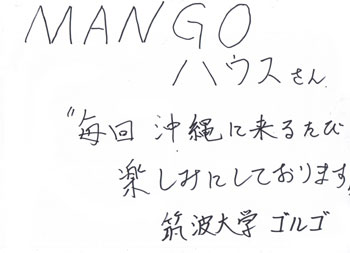 MANGO
ハウスさん
"毎回 沖縄に来るたび
楽しみにしております。
筑波大学 ゴルゴ